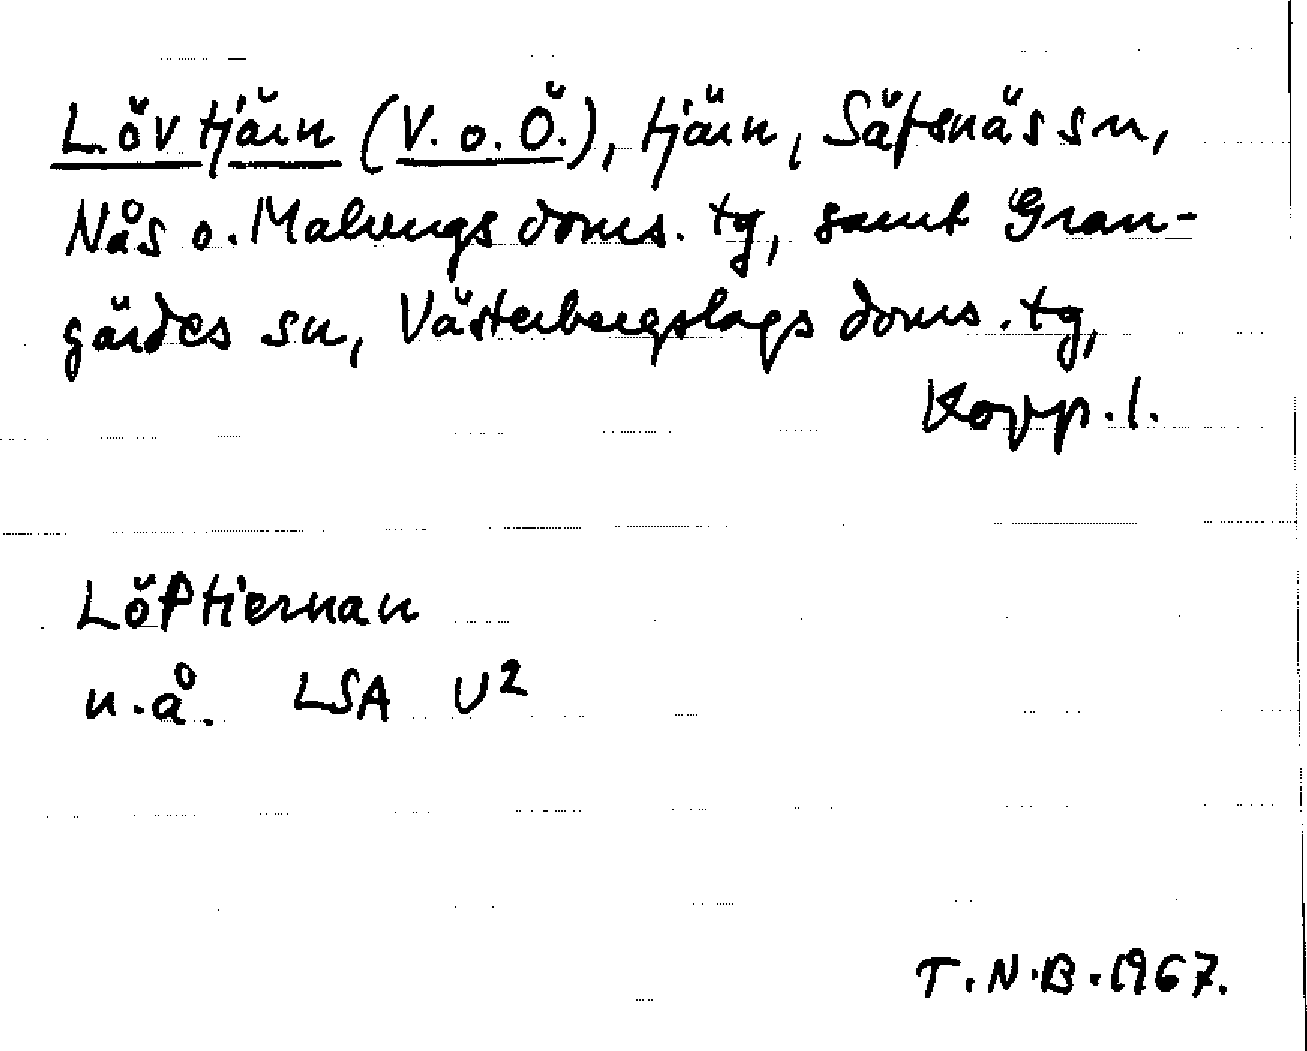 Lövtjärn (V. o. Ö.), tjärn, Säfsnäs sn,
Nås o. Malungs doms. tg, samt Gran-
gärdes sn, Västerbergslags doms. tg,
Kopp. l.
Löftiernan
n.å. LSA U²
T.N.B. 1967.